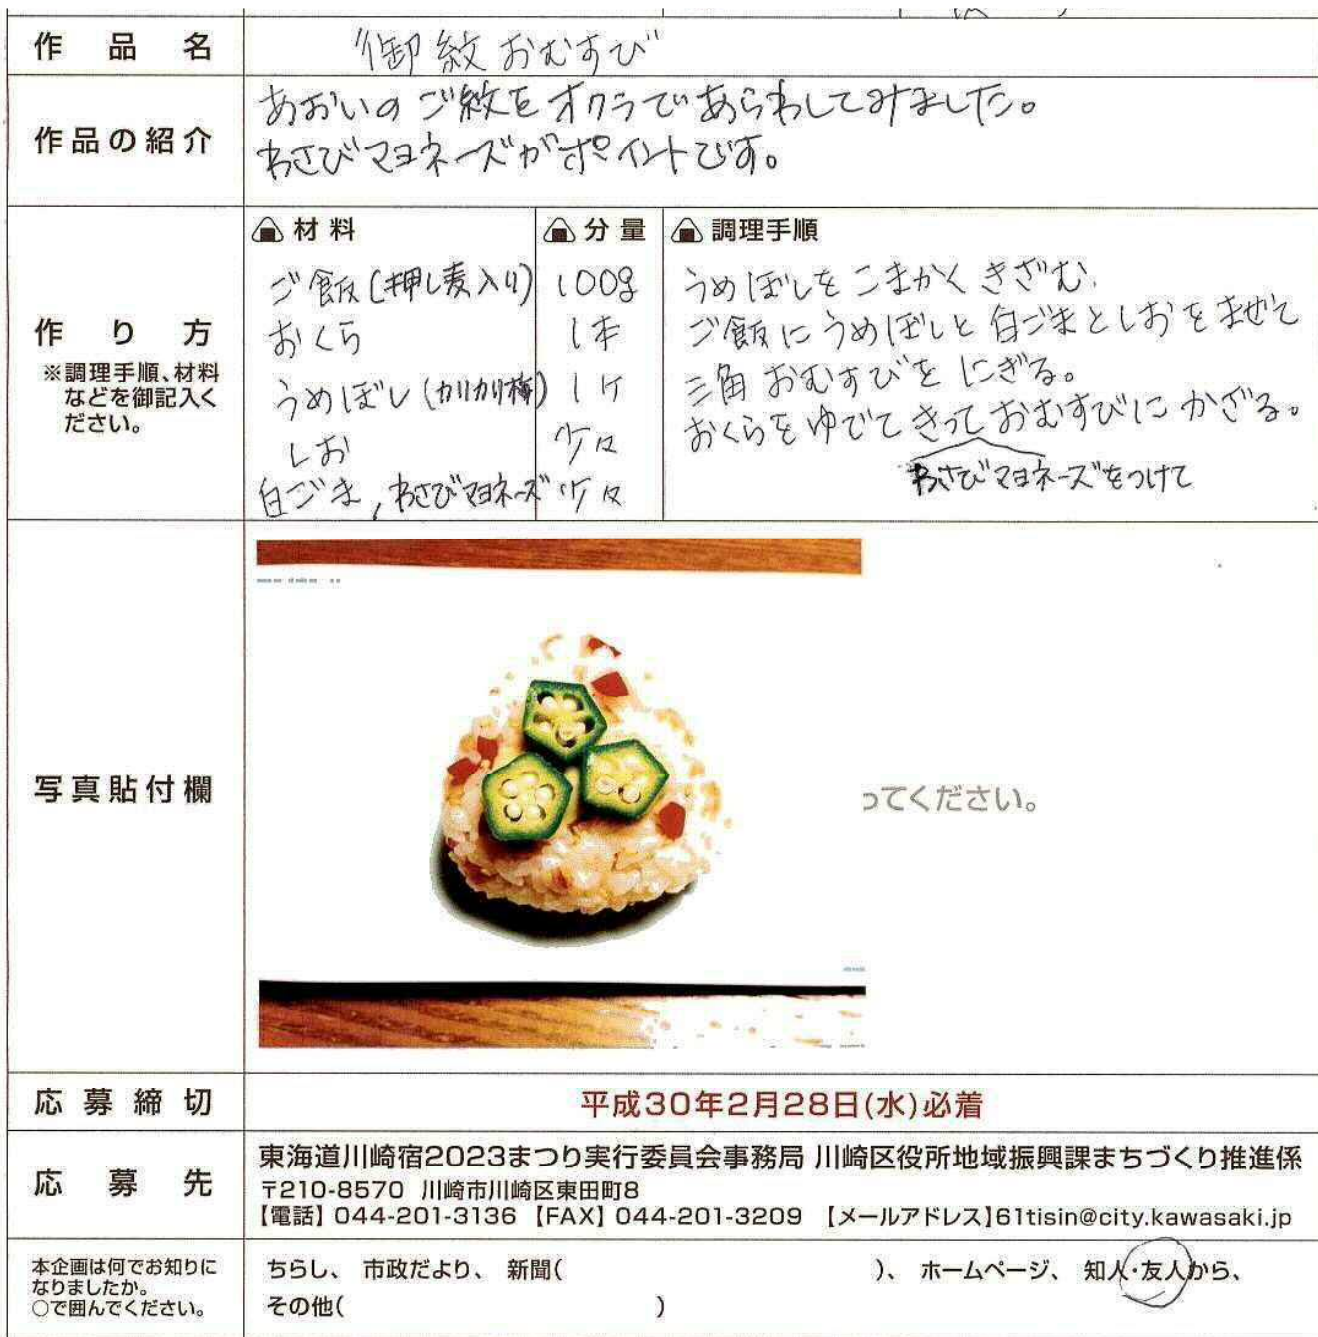 作品名
"御紋おむすび"
作品の紹介
あおいのご紋をオクラであらわしてみました。
わさびマヨネーズがポイントです。
作り方
※調理手順、材料
などを御記入く
ださい。
材料
ご飯(押し麦入り)
おくら
うめぼし(カリカリ梅)
しお
白ごま,わさびマヨネーズ
分量
100g
1本
1ケ
少々
少々
調理手順
うめぼしをこまかくきざむ.
ご飯にうめぼしと白ごまとしおをまぜて
三角おむすびをにぎる。
おくらをゆでてきっておむすびにかざる。
わさびマヨネーズをつけて
写真貼付欄
ってください。
応募締切
平成30年2月28日(水)必着
応募先
東海道川崎宿2023まつり実行委員会事務局 川崎区役所地域振興課まちづくり推進係
〒210-8570 川崎市川崎区東田町8
【電話】044-201-3136 【FAX】044-201-3209 【メールアドレス】61tisin@city.kawasaki.jp
本企画は何でお知りに
なりましたか。
○で囲んでください。
ちらし、 市政だより、 新聞( )、 ホームページ、 知人・友人から、
その他( )